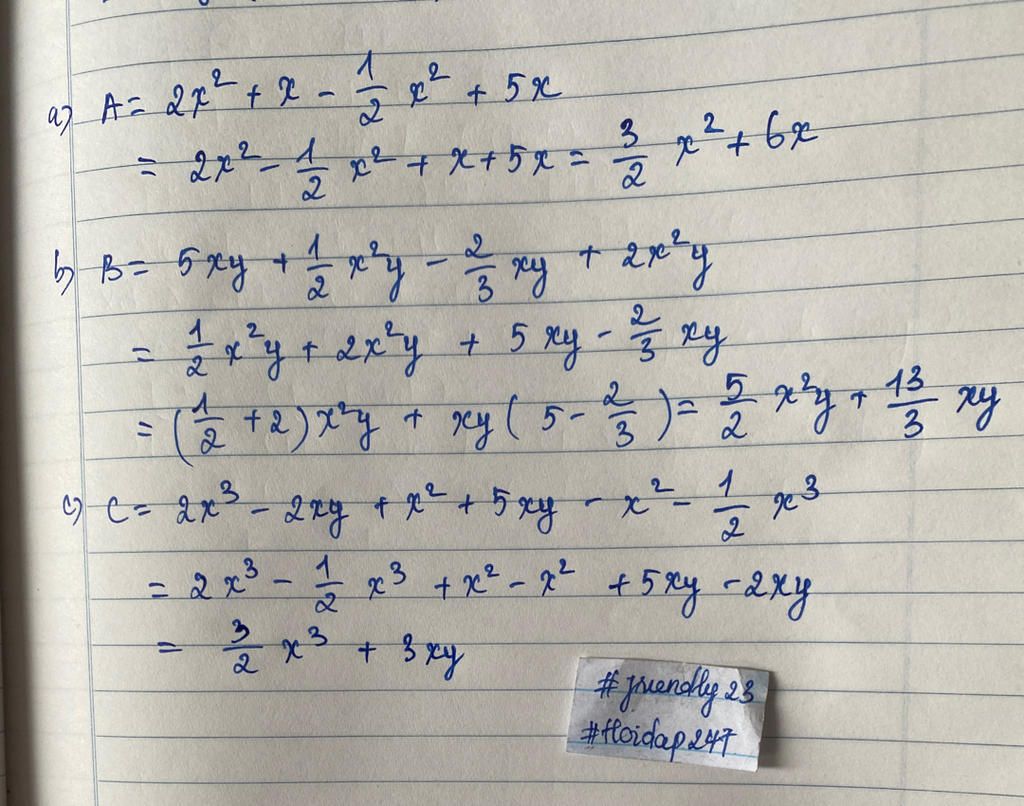 a) A = 2x² + x - 1/2 x² + 5x
= 2x² - 1/2 x² + x + 5x = 3/2 x² + 6x
b) B = 5xy + 1/2 x²y - 2/3 xy + 2x²y
= 1/2 x²y + 2x²y + 5xy - 2/3 xy
= (1/2 + 2) x²y + xy (5 - 2/3) = 5/2 x²y + 13/3 xy
c) C = 2x³ - 2xy + x² + 5xy - x² - 1/2 x³
= 2x³ - 1/2 x³ + x² - x² + 5xy - 2xy
= 3/2 x³ + 3xy
#friendly23
#Hoidap247